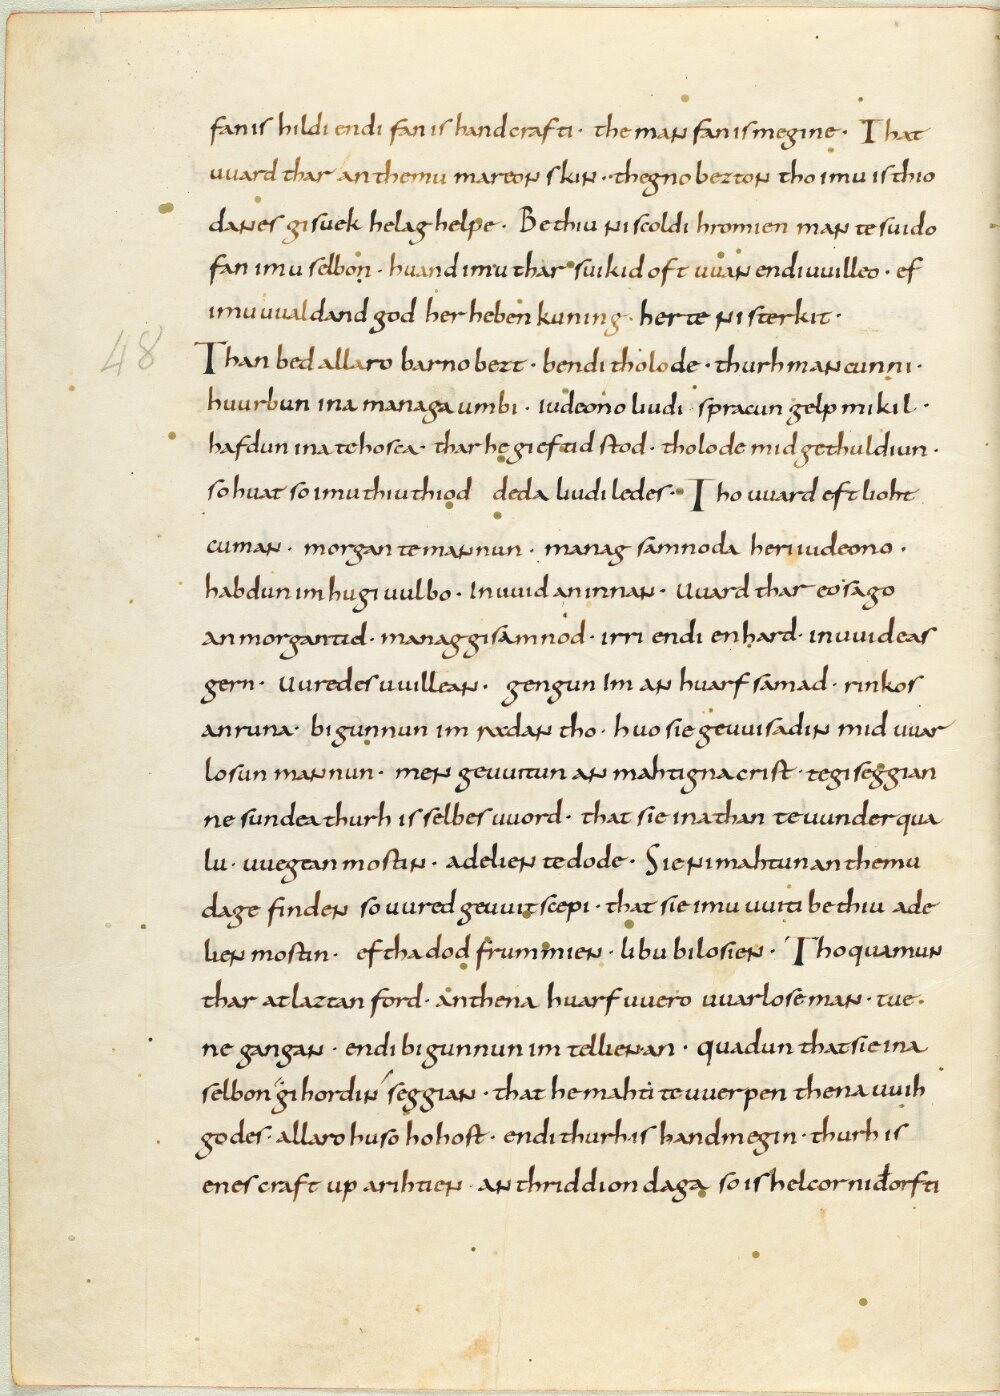 fan is hildi endi fan is handcrafti · the man fan is megine · That
uuard thar an themu mareon skin · thegno bezton tho imu is thio
danes gisuek helag helpe · Bethiu ni scoldi hromien man te suido
fan imu selbon · huand imu thar suikid oft uuan endi uuilleo · ef
imu uualdand god her heben kuning · herte ni sterkit ·
48
Than bed allaro barno bezt · bendi tholode · thurh mancunni ·
huurbun ina managa umbi · iudeono liudi spracun gelp mikil ·
hafdun ina te hosca · thar he gieftid stod · tholode mid gethuldiun ·
so huat so imu thiu thiod deda liudi ledes · Tho uuard eft lioht
cuman · morgan te mannun · manag samnoda heri iudeono ·
habdun im hugi uulbo · Inuuid an innan · Uuard thar eosago
an morgantid · manag gisamnod · irri endi enhard · inuuideas
gern · Uuredes uuillean · gengun Im an huarf samad · rinkos
an runa · bigunnun im rædan tho · huo sie geuuisadin mid uuar
losun mannun · men geuuitun an mahtigna crist · te giseggian
ne sundea thurh is selbes uuord · that sie ina than te uunderqua
lu · uuegean mostin · adelien te dode · Sie ni mahtun an themu
dage finden so uured geuuitscepi · that sie imu uuiti bethiu ade
lien mostin · eftha dod frummien · libu bilosien · Tho quamun
thar at laztan ford · an thena huarf uuero uuarlose man · tue ·
ne gangan · endi bigunnun im tellien an · quadun that sie ina
selbon gihordin seggian · that he mahti te uuerpen thena uuih
godes · allaro huso hohost · endi thurh is handmegin · thurh is
enes craft up arihtien · an thriddion daga so is helcor ni đorfti